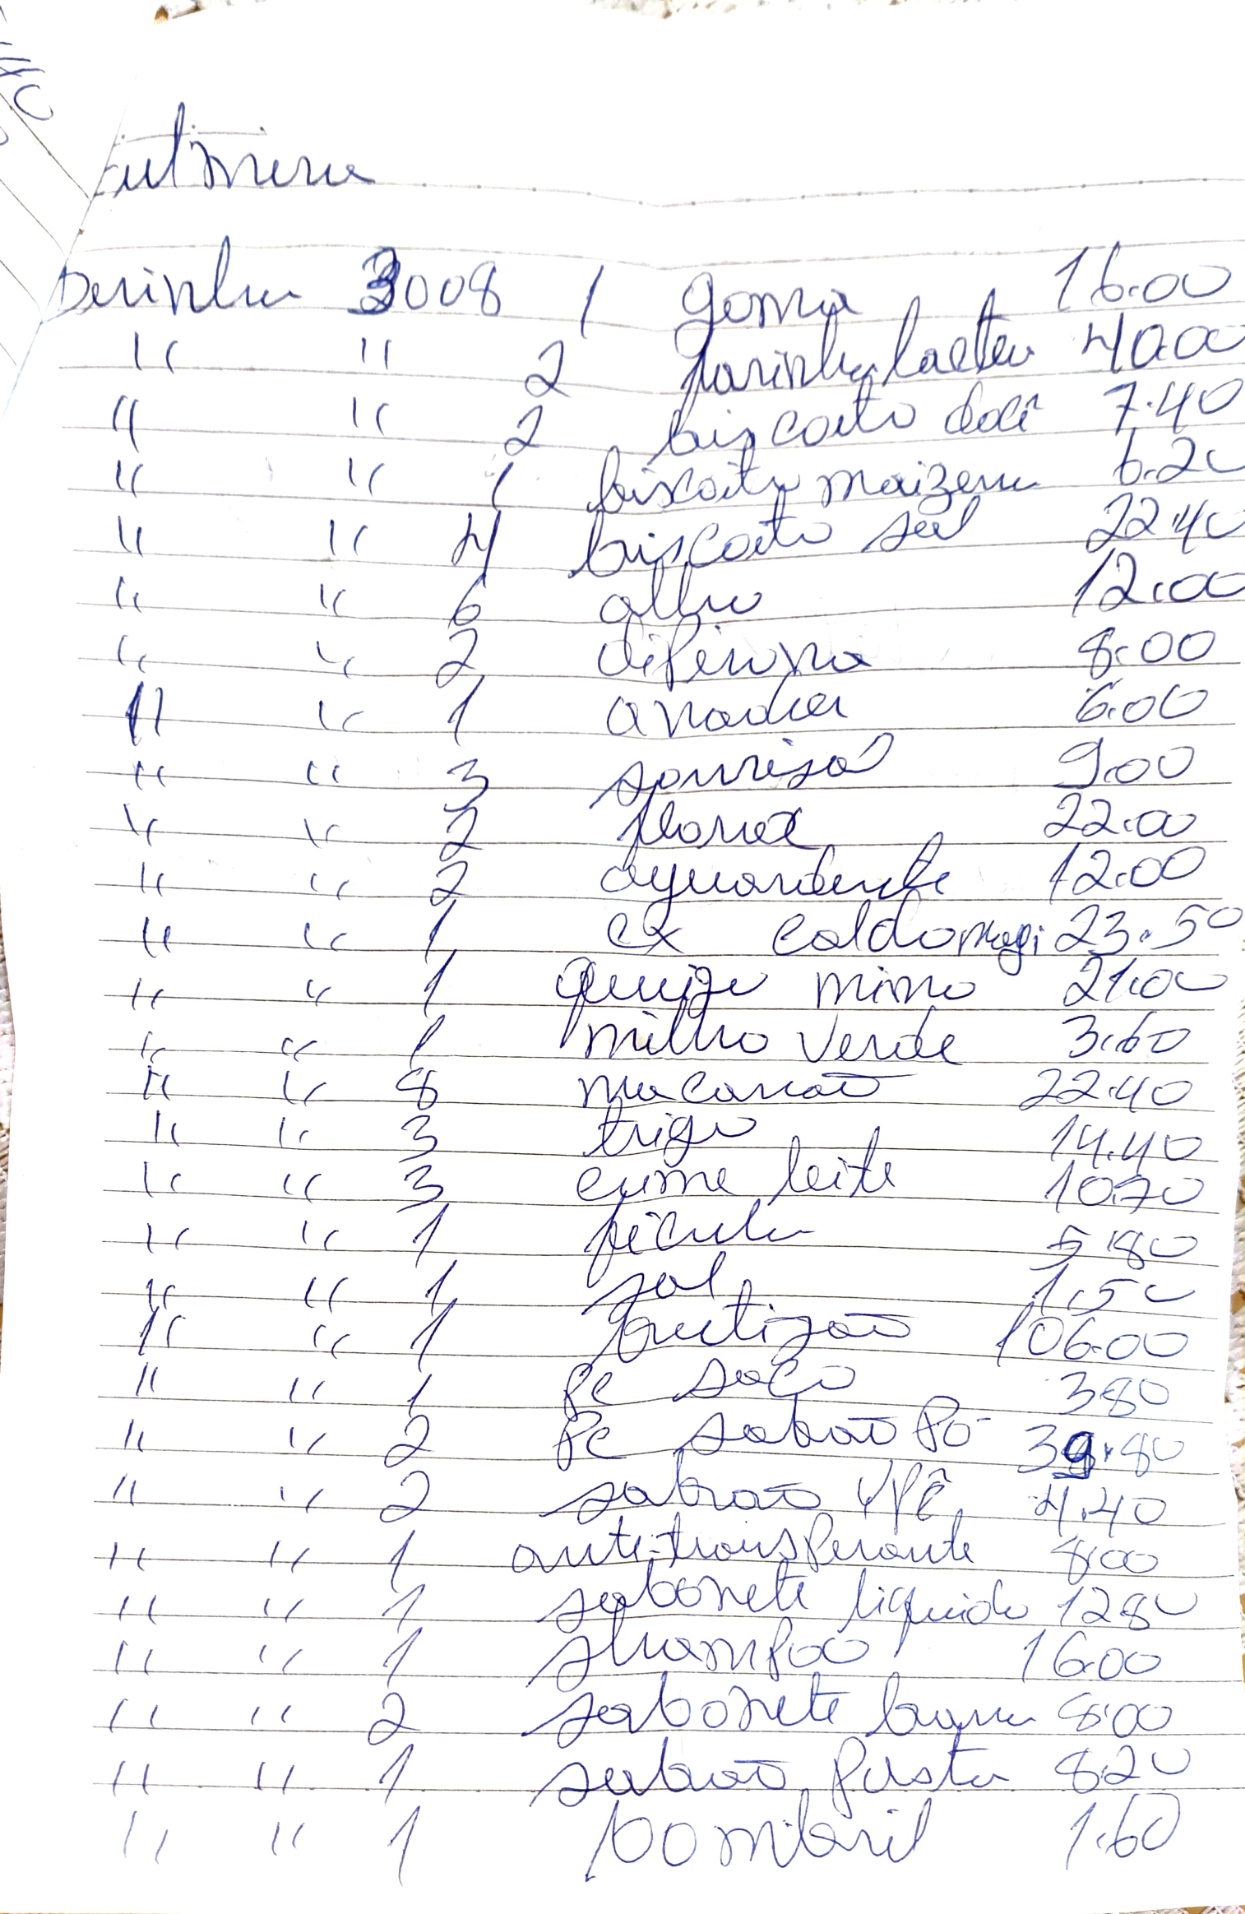 Derinha 3008 1 goma 16.00
" " 2 farinha lactea 40.00
" " 2 biscoito docê 7.40
" " 1 biscoito maizena 6.20
" " 4 biscoito sal 22.40
" " 6 alho 12.00
" " 2 dipirona 8.00
" " 1 anador 6.00
" " 3 sonrisal 9.00
" " 2 2200
" " 2 aguardente 12.00
" " 1 cx caldo magi 23.50
" " 1 queijo mino 21.00
" " 1 milho verde 3.60
" " 8 macarrão 22.40
" " 3 trigo 14.40
" " 3 creme leite 10.70
" " 1 fécula 5.80
" " 1 sal 1.50
" " 1 butijão 106.00
" " 1 pc saco 3.80
" " 2 pc sabão Pó 39.80
" " 2 sabão YPÊ 4.40
" " 1 anti-transperante 8.00
" " 1 sabonete liquido 12.80
" " 1 shampoo 16.00
" " 2 sabonete barra 8.00
" " 1 sabão pasta 8.20
" " 1 bombril 1.60